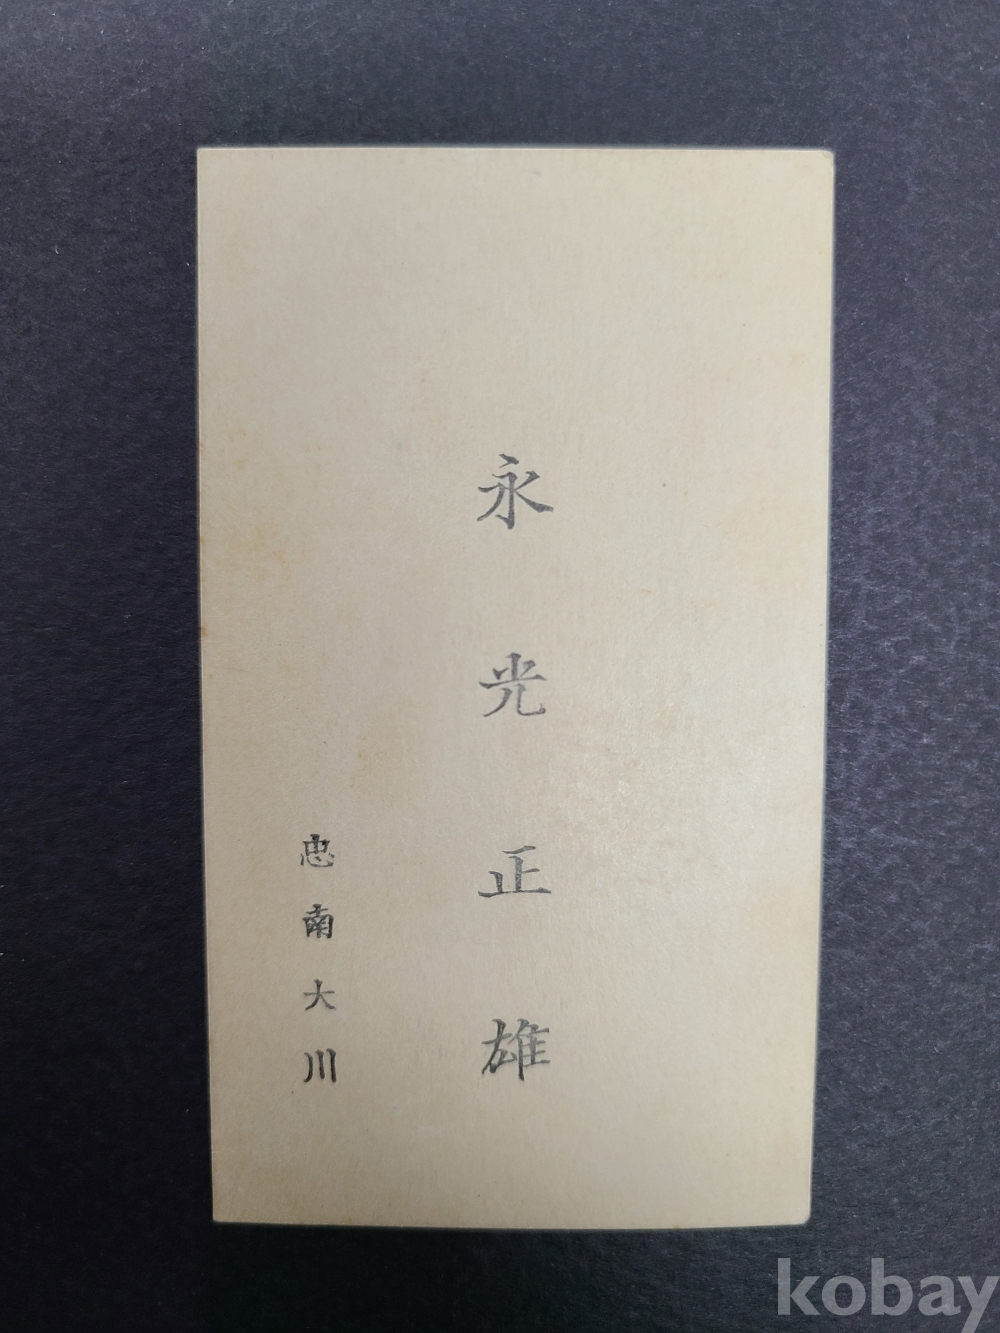 永光正雄
忠南大川
kobay